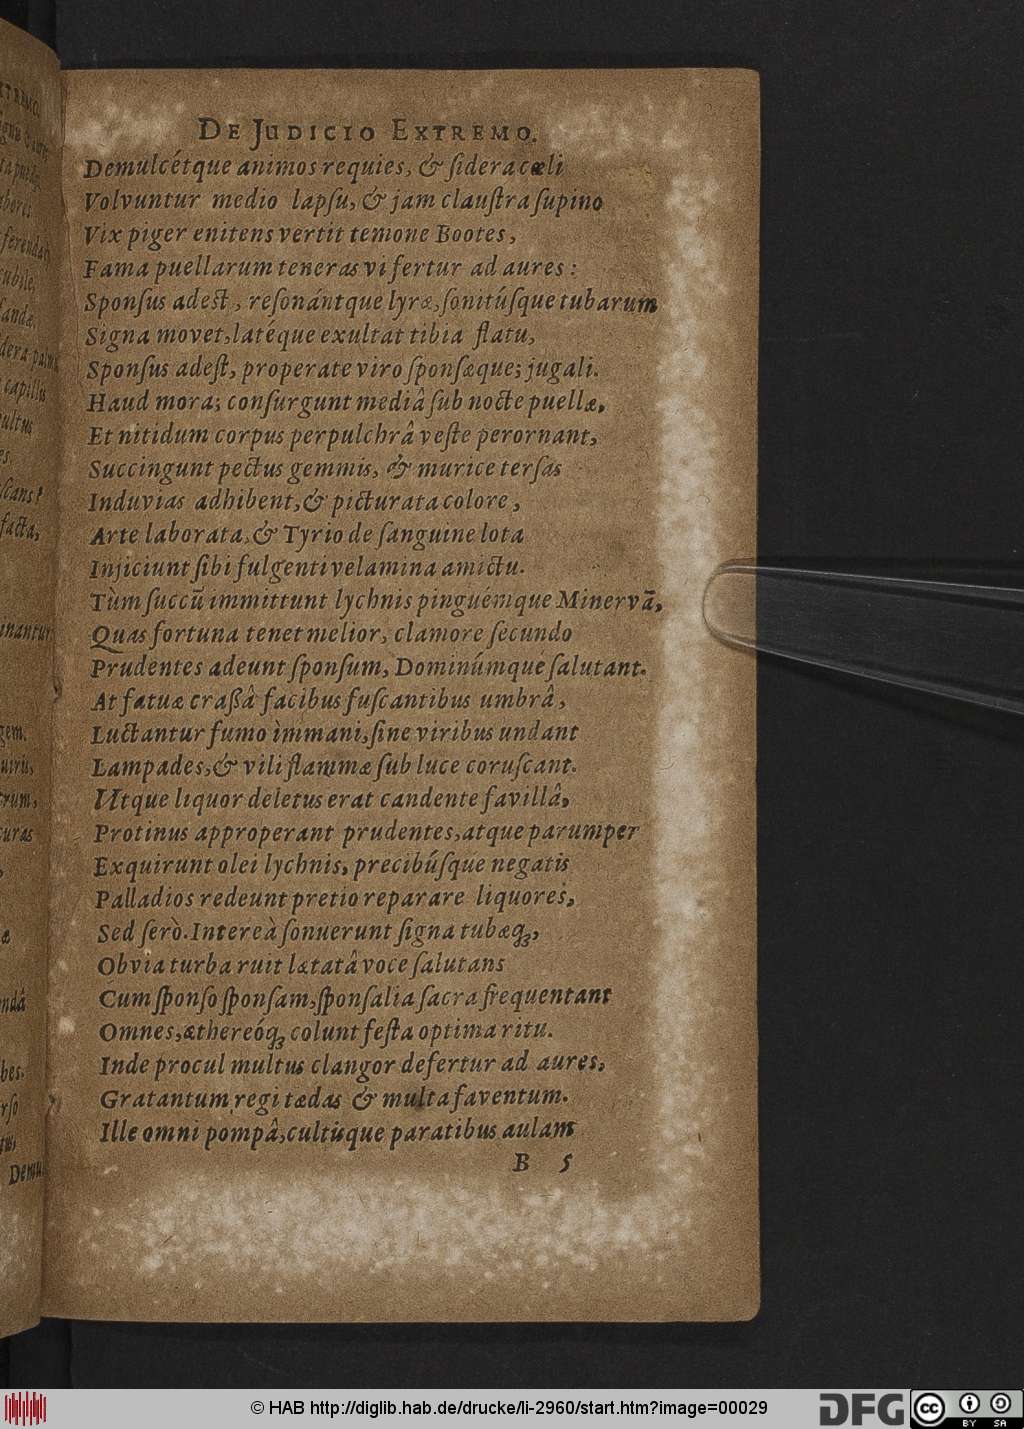 DE JUDICIO EXTREMO.
Demulcétque animos requies, & ſidera cæli
Volvuntur medio lapſu, & jam clauſtra ſupino
Vix piger enitens vertit temone Bootes,
Fama puellarum teneras vi fertur ad aures:
Sponſus adeſt, reſonántque lyræ, ſonitúſque tubarum
Signa movet, latéque exultat tibia flatu,
Sponſus adeſt, properate viro ſponſæque; jugali.
Haud mora; conſurgunt mediâ ſub nocte puellæ,
Et nitidum corpus perpulchrâ veſte perornant,
Succingunt pectus gemmis, & murice terſas
Induvias adhibent, & picturata colore,
Arte laborata, & Tyrio de ſanguine lota
Injiciunt ſibi fulgenti velamina amictu.
Tùm ſuccū immittunt lychnis pinguémque Minervã,
Quas fortuna tenet melior, clamore ſecundo
Prudentes adeunt ſponſum, Dominúmque ſalutant.
At fatuæ craßâ facibus fuſcantibus umbrâ,
Luctantur fumo ìmmani, ſine viribus undant
Lampades, & vili flammæ ſub luce coruſcant.
Utque liquor deletus erat candente favillâ,
Protinus approperant prudentes, atque parumper
Exquirunt olei lychnis, precibúſque negatis
Palladios redeunt pretio reparare liquores,
Sed ſerò. Intereà ſonuerunt ſigna tubæq́;,
Obvia turba ruit lætatâ voce ſalutans
Cum ſponſo ſponſam, ſponſalia ſacra frequentant
Omnes, æthereóq; colunt feſta optima ritu.
Inde procul multus clangor defertur ad aures,
Gratantum regi tædas & multa faventum.
Ille omni pompâ, cultùque paratibus aulam
B 5
ferendas
cubile,
capillis
vultus
facta,
Demul-
© HAB http://diglib.hab.de/drucke/li-2960/start.htm?image=00029
DFG
cc
BY SA